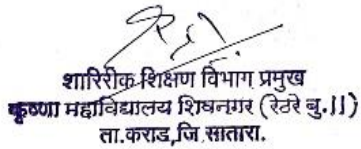 शारिरीक शिक्षण विभाग प्रमुख
कृष्णा महाविद्यालय शिवनगर (रेटरे बु.॥)
ता.कराड,जि.सातारा.